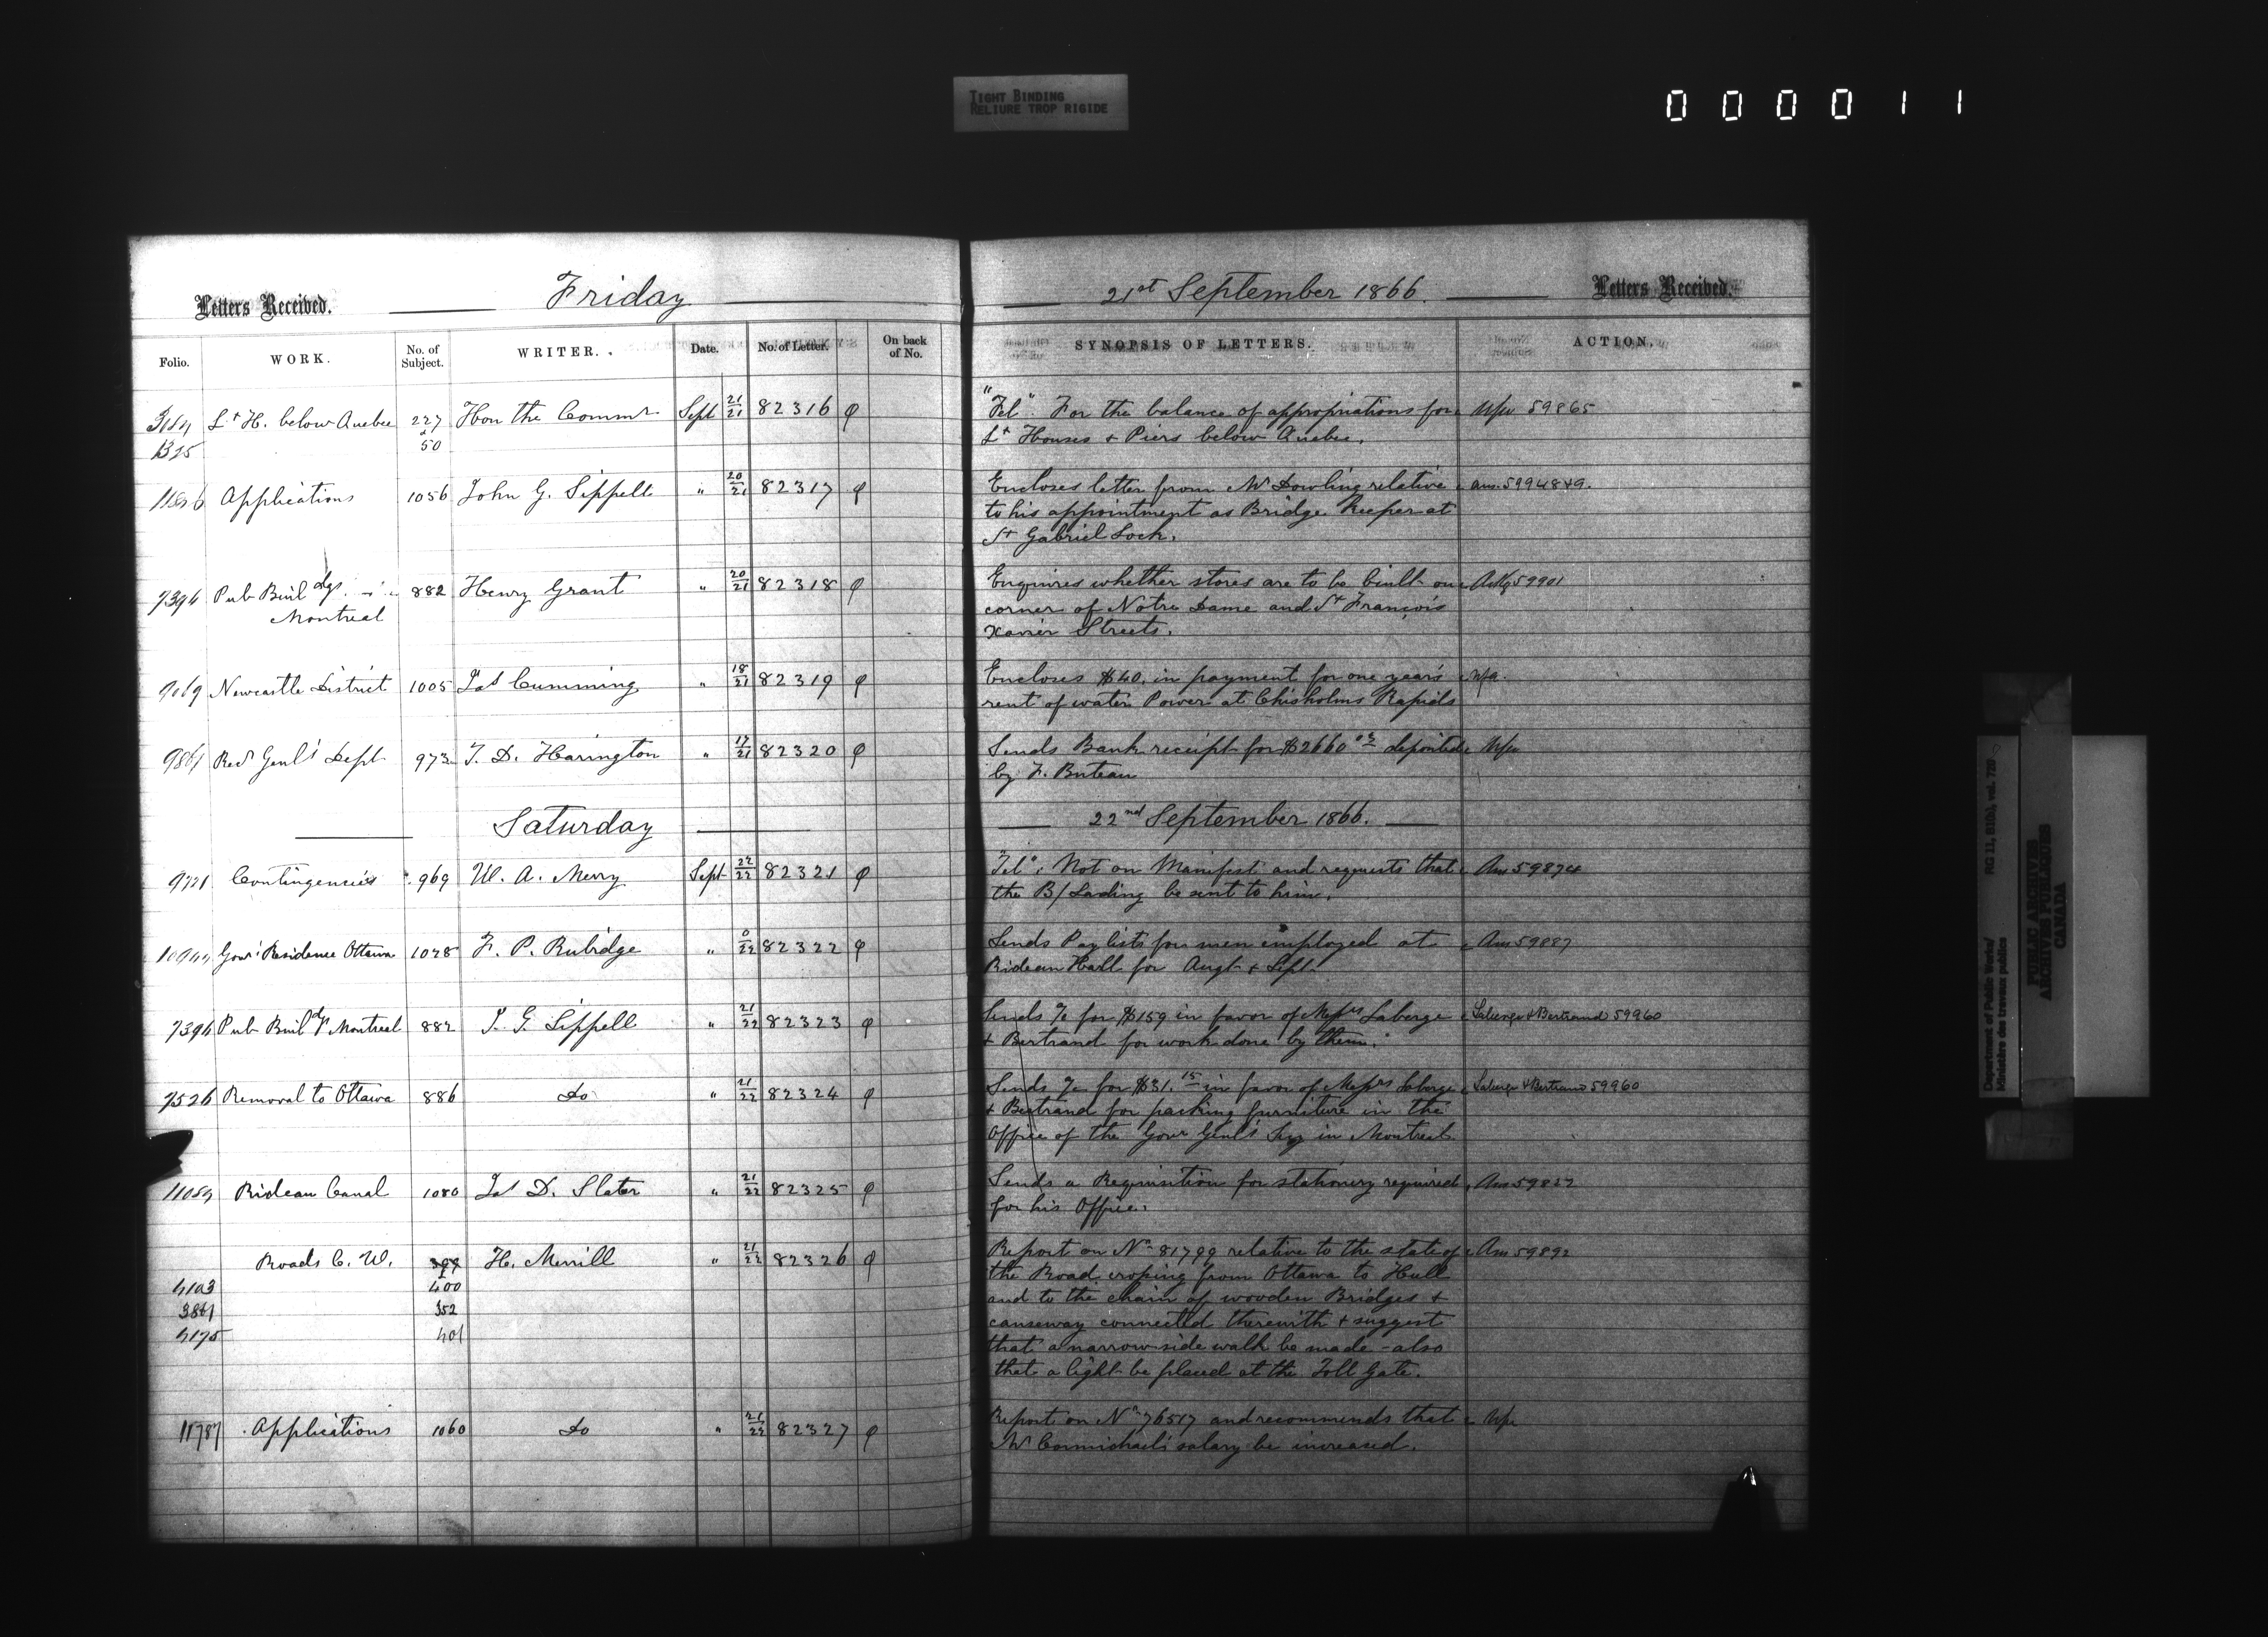 TIGHT BINDING
RELIURE TROP RIGIDE
000011
Letters Received. Friday 21st September 1866. Letters Received.
Folio. WORK. No. of Subject. WRITER. Date. No. of Letter. On back of No. SYNOPSIS OF LETTERS. ACTION.
Lt H. below Quebec 227 Hon the Commr Sept 21/21 82316 φ "Tel". For the balance of appropriations for 59865
50 Lt Houses & Piers below Quebec.
Applications 1056 John G. Sippell " 20/21 82317 φ Encloses letter from Mr Dowling relative
to his appointment as Bridge Keeper at
St Gabriel Lock.
7396 Pub Buildgs. 882 Henry Grant " 20/21 82318 φ Enquires whether stores are to be built on 59901
Montreal corner of Notre Dame and St François
Xavier Streets.
9069 Newcastle District 1005 Jas Cumming " 18/21 82319 φ Encloses $40. in payment for one year's Nfa.
rent of water Power at Chisholms Rapids
9861 Recr Genl's Dept 973 T. D. Harington " 17/21 82320 φ Sends Bank receipt for $2660 deposited
by F. Buteau
Saturday 22nd September 1866.
9721 Contingencies 969 W. A. Merry Sept 22/22 82321 φ "Tel". Not on Manifest and requests that Ans 59874
the B/Lading be sent to him.
Govr Residence Ottawa 1028 F. P. Rubidge " 0/22 82322 φ Sends Pay lists for men employed at Ans 59887
Rideau Hall for Augt & Sept
7396 Pub Buildgs Montreal 882 J. G. Sippell " 21/22 82323 φ Sends a/c for $159 in favor of Messrs Laberge Laberge & Bertrand 59960
& Bertrand for work done by them.
7526 Removal to Ottawa 886 do " 21/22 82324 φ Sends a/c for $31.15 in favor of Messrs Laberge Laberge & Bertrand 59960
& Bertrand for packing furniture in the
Office of the Govr Genl's Secy in Montreal
Rideau Canal 1080 Jas D. Slater " 21/22 82325 φ Sends a Requisition for stationery required
for his Office.
Roads C. W. 399 H. Merrill " 21/22 82326 φ Report on No 81799 relative to the state of Ans 59892
4103 400 the Road croping from Ottawa to Hull
3861 352 and to the chain of wooden Bridges &
4175 401 causeway connected therewith & suggest
that a narrow side walk be made - also
that a light be placed at the Toll Gate.
11787 Applications 1060 do " 21/22 82327 φ Report on No 76517 and recommends that
Mr Carmichael's salary be increased.
Department of Public Works/
Ministère des travaux publics
RG 11, B1(b), vol. 720
PUBLIC ARCHIVES
ARCHIVES PUBLIQUES
CANADA